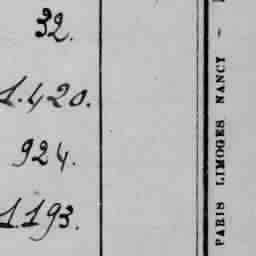 32.
1.420.
924.
1.193.
PARIS LIMOGES NANCY -